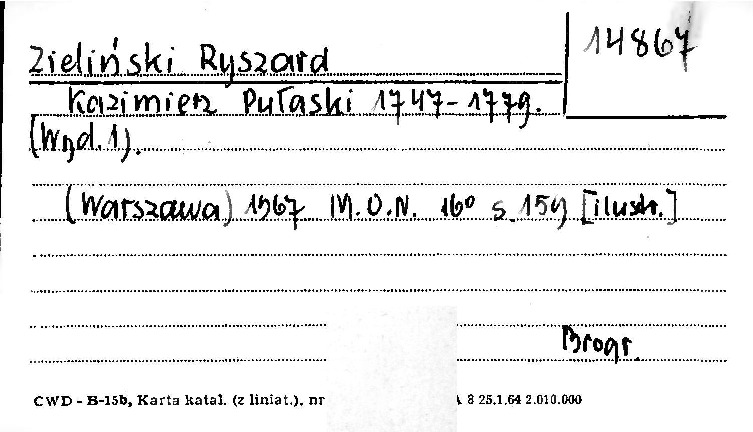 14867
Zieliński Ryszard
Kazimierz Pułaski 1747-1779.
(Wyd. 1).
(Warszawa) 1967 M.O.N. 16° s. 159 [ilustr.]
Biogr.
CWD - B-15b, Karta katal. (z liniat.), nr A 8 25.1.64 2.010.000